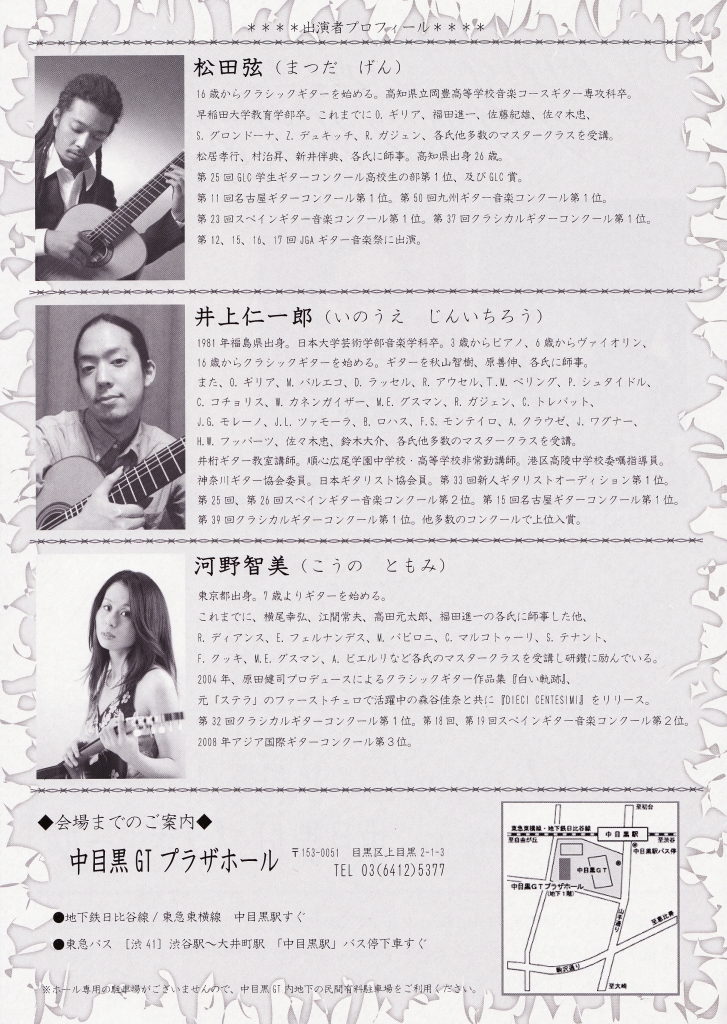 ＊＊＊＊出演者プロフィール＊＊＊＊
松田弦（まつだ　げん）
16歳からクラシックギターを始める。高知県立岡豊高等学校音楽コースギター専攻科卒。
早稲田大学教育学部卒。これまでにO.ギリア、福田進一、佐藤紀雄、佐々木忠、
S.グロンドーナ、Z.デュキッチ、R.ガジェン、各氏他多数のマスタークラスを受講。
松居孝行、村治昇、新井伴典、各氏に師事。高知県出身26歳。
第25回GLC学生ギターコンクール高校生の部第1位、及びGLC賞。
第11回名古屋ギターコンクール第1位。第50回九州ギター音楽コンクール第1位。
第23回スペインギター音楽コンクール第1位。第37回クラシカルギターコンクール第1位。
第12、15、16、17回JGAギター音楽祭に出演。
井上仁一郎（いのうえ　じんいちろう）
1981年福島県出身。日本大学芸術学部音楽学科卒。3歳からピアノ、6歳からヴァイオリン、
16歳からクラシックギターを始める。ギターを秋山智樹、原善伸、各氏に師事。
また、O.ギリア、M.バルエコ、D.ラッセル、R.アウセル、T.M.ペリング、P.シュタイドル、
C.コチョリス、W.カネンガイザー、M.E.グスマン、R.ガジェン、C.トレパット、
J.G.モレーノ、J.L.ツァモーラ、B.ロハス、F.S.モンテイロ、A.クラウゼ、J.ワグナー、
H.W.フッパーツ、佐々木忠、鈴木大介、各氏他多数のマスタークラスを受講。
井桁ギター教室講師。順心広尾学園中学校・高等学校非常勤講師。港区高陵中学校委嘱指導員。
神奈川ギター協会委員。日本ギタリスト協会会員。第33回新人ギタリストオーディション第1位。
第25回、第26回スペインギター音楽コンクール第2位。第15回名古屋ギターコンクール第1位。
第39回クラシカルギターコンクール第1位。他多数のコンクールで上位入賞。
河野智美（こうの　ともみ）
東京都出身。7歳よりギターを始める。
これまでに、横尾幸弘、江間常夫、高田元太郎、福田進一の各氏に師事した他、
R.ディアンス、E.フェルナンデス、M.バビロニ、C.マルコトゥーリ、S.テナント、
F.クッキ、M.E.グスマン、A.ピエルリなど各氏のマスタークラスを受講し研鑽に励んでいる。
2004年、原田健司プロデュースによるクラシックギター作品集『白い軌跡』、
元「ステラ」のファーストチェロで活躍中の森谷佳奈と共に『DIECI CENTESIMI』をリリース。
第32回クラシカルギターコンクール第1位。第18回、第19回スペインギター音楽コンクール第2位。
2008年アジア国際ギターコンクール第3位。
◆会場までのご案内◆
中目黒GTプラザホール　〒153-0051　目黒区上目黒2-1-3
TEL 03(6412)5377
●地下鉄日比谷線/東急東横線　中目黒駅すぐ
●東急バス　[渋41] 渋谷駅～大井町駅　「中目黒駅」バス停下車すぐ
※ホール専用の駐車場がございませんので、中目黒GT内地下の民間有料駐車場をご利用ください。
至初台
東急東横線・地下鉄日比谷線
中目黒駅
至自由が丘
至渋谷
中目黒駅バス停
中目黒GT
中目黒GTプラザホール
(地下1階)
山手通り
至恵比寿
駒沢通り
至大崎